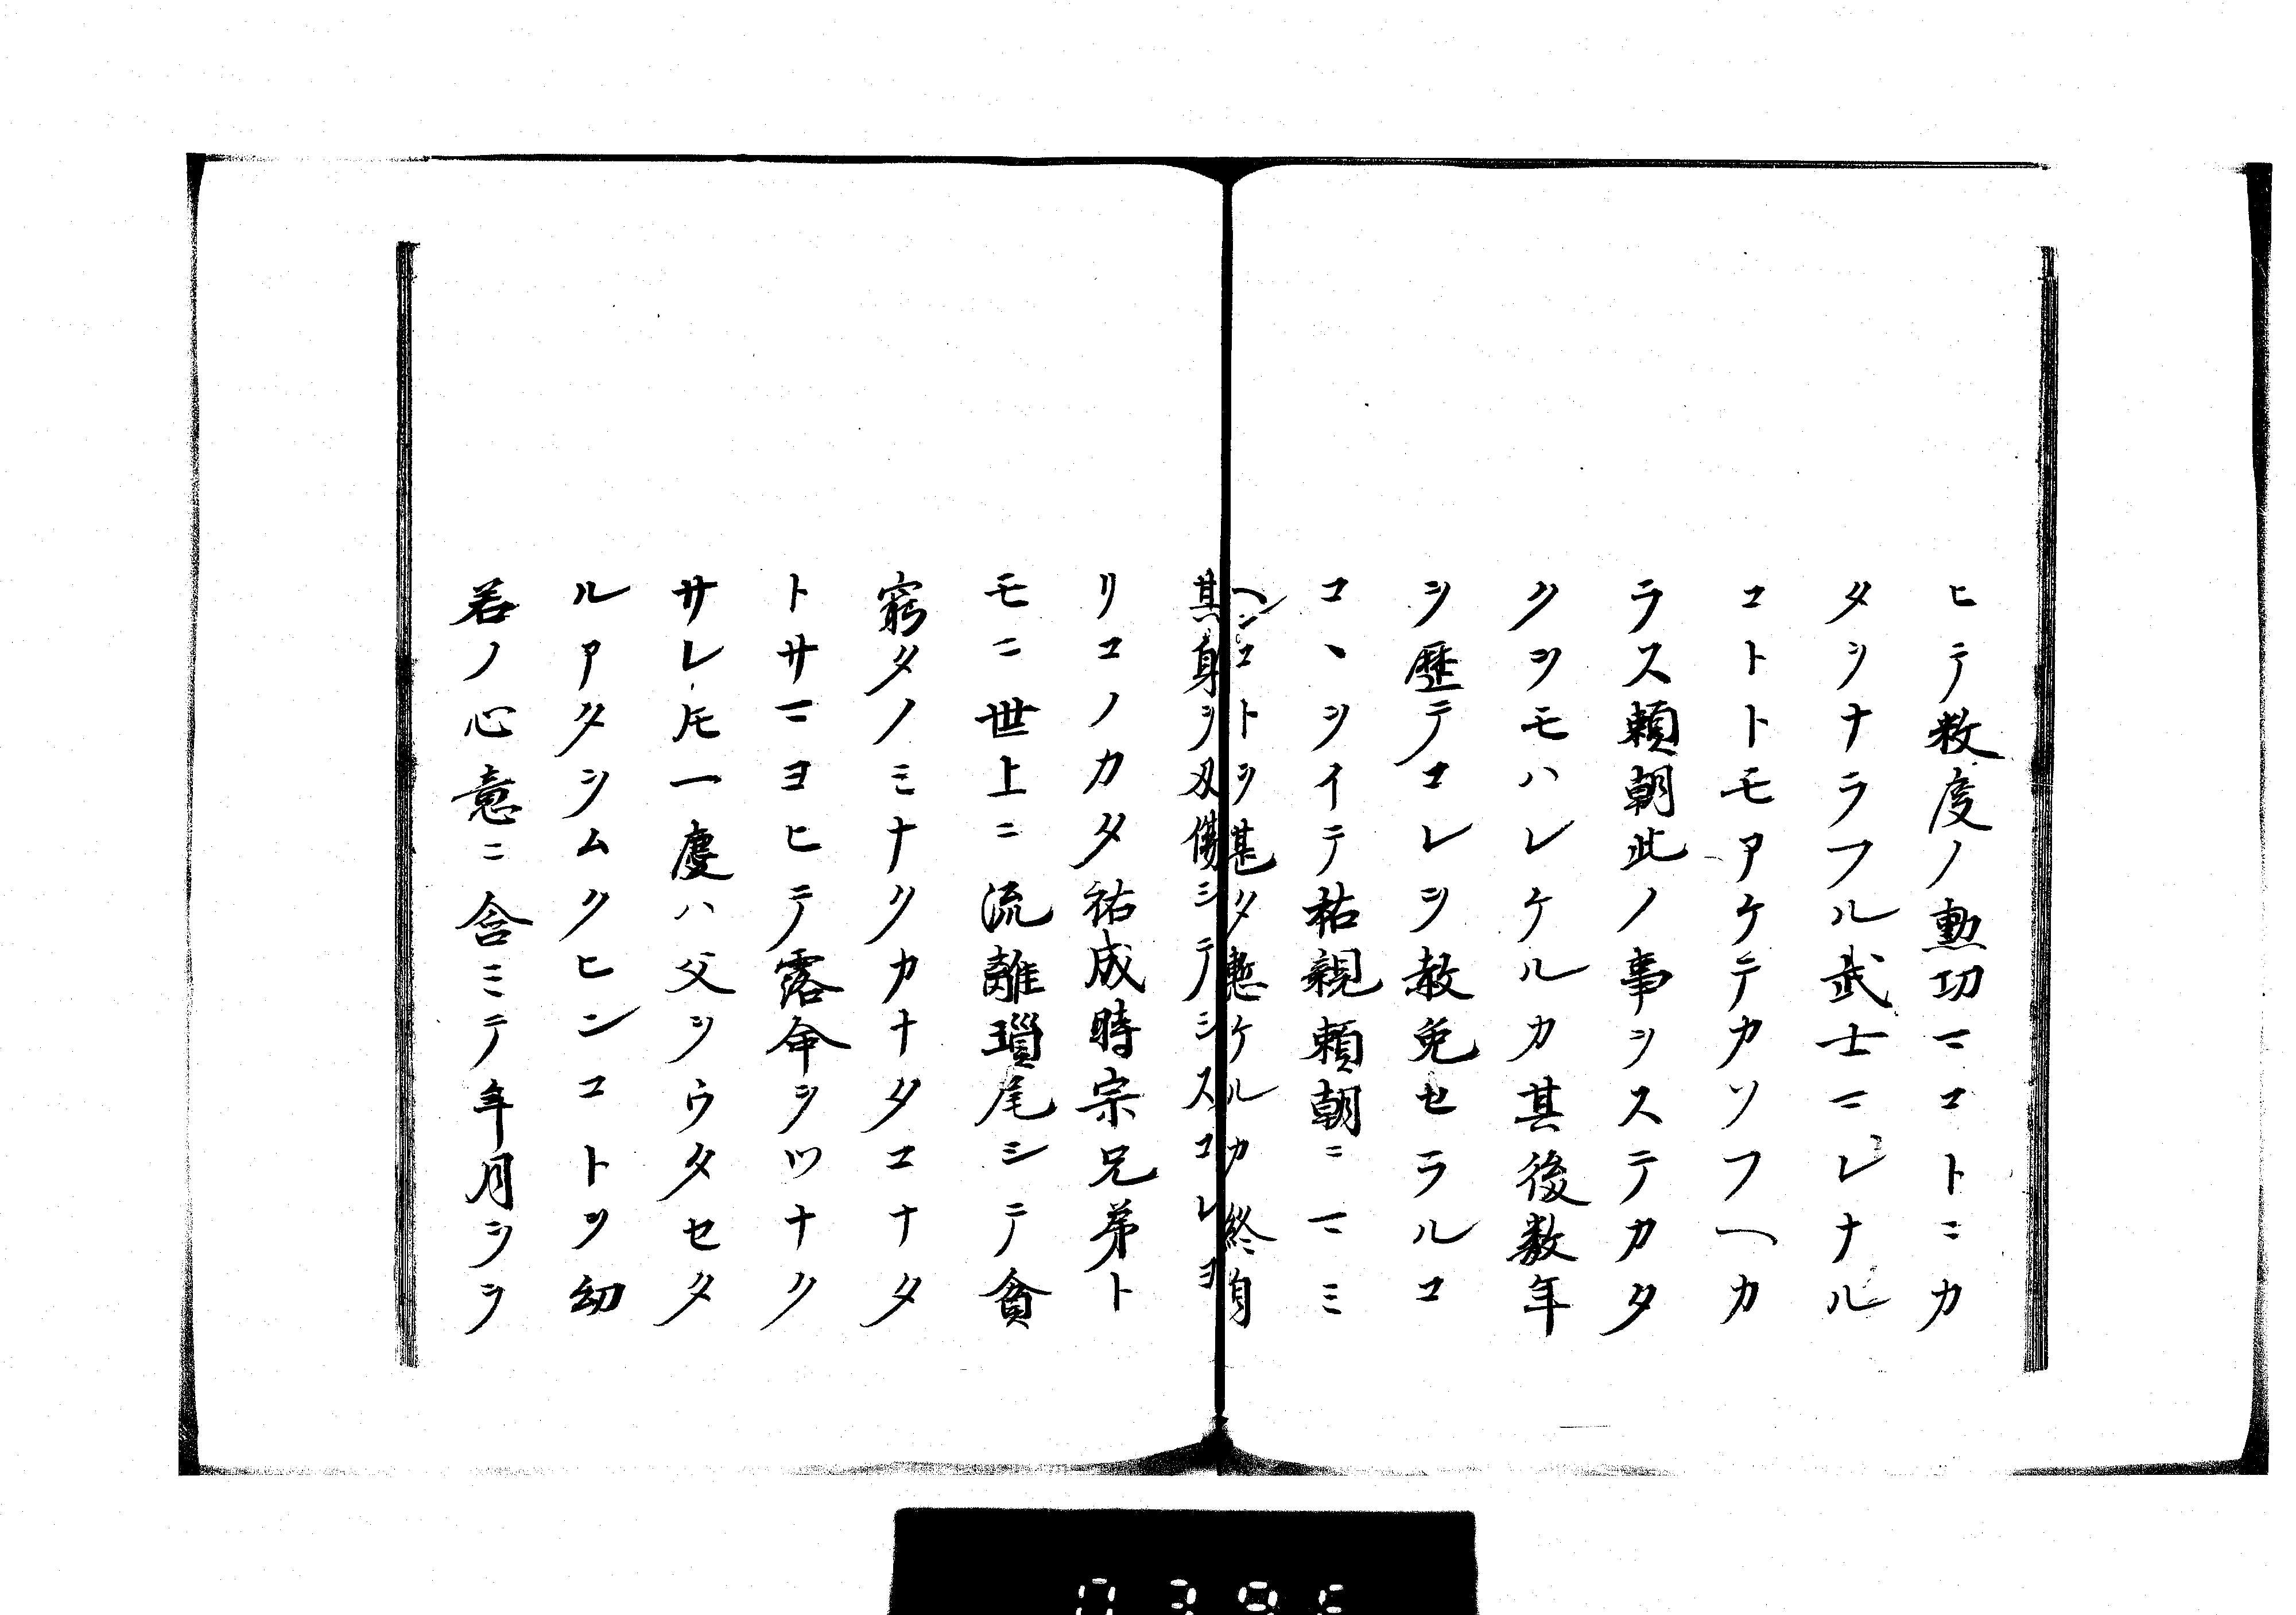 ヒテ数度ノ勲功マコトニカ
タシナラフル武士マレナル
コトトモアケテカソフヘカ
ラス頼朝此ノ事ヲステカタ
クヲモハレケルカ其後数年
ヲ歴テコレヲ赦免セラルコ
コヽヲイテ祐親頼朝ニマミ
ヘンコトヲ甚タ慙ケルカ終自
其身ヲ刃傷シテシスコレヨ
リコノカタ祐成時宗兄弟ト
モニ世上ニ流離瑣尾シテ貧
窮タノミナクカナタコナタ
トサマヨヒテ露命ヲツナク
サレ𪜈一慶ハ父ヲウタセタ
ルアタシムクヒンコトヲ幼
若ノ心意ニ含ミテ年月ヲヲ